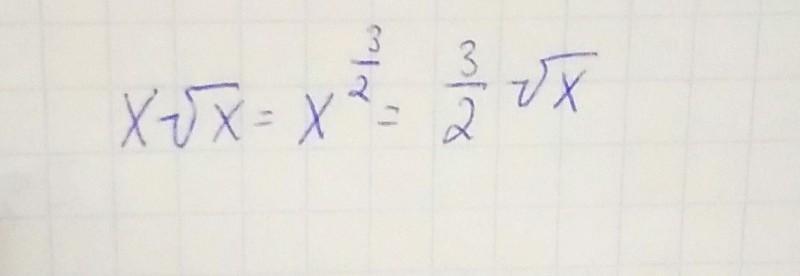 x√x = x^{3/2} = 3/2 √x